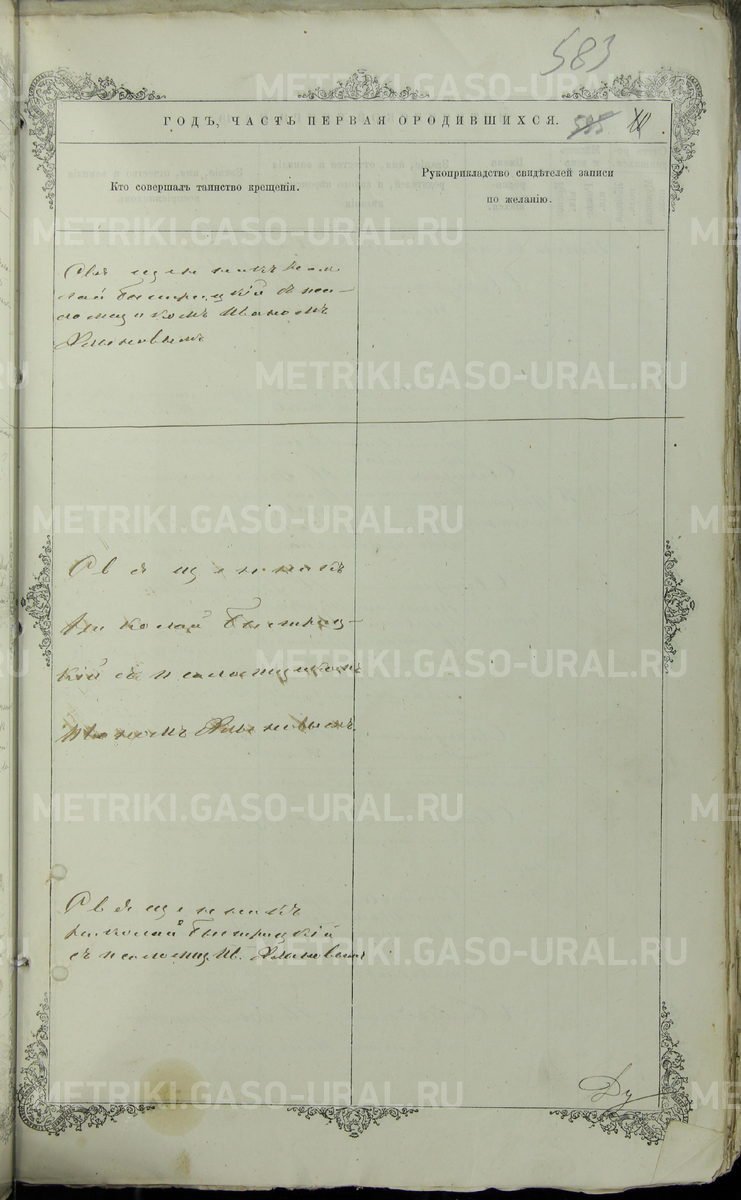 583
ГОДЪ, ЧАСТЬ ПЕРВАЯ О РОДИВШИХСЯ. 585
Кто совершалъ таинство крещенія.
Рукоприкладство свидѣтелей записи
по желанію.
Священникъ Нико
лай Быстрицкій съ пса-
ломщикомъ Иваномъ
Священникъ
Николай Быстриц-
кій съ псаломщикомъ
Иваномъ
Священникъ
Николай Быстрицкій
съ псаломщ. Ив.
METRIKI.GASO-URAL.RU